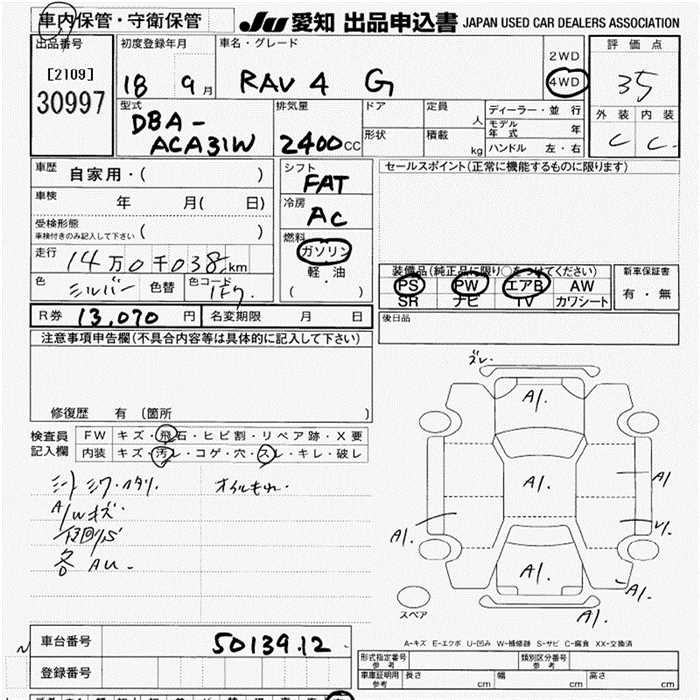 車内保管・守衛保管
JU 愛知 出品申込書 JAPAN USED CAR DEALERS ASSOCIATION
出品番号
[2109]
30997
初度登録年月
18 9月
車名・グレード
RAV4 G
2WD
4WD
評価点
35
外装 内装
C C
型式
DBA-
ACA31W
排気量
2400cc
ドア
形状
定員
人
積載
kg
ディーラー・並行
モデル年式 年
ハンドル 左・右
車歴
自家用・( )
車検
年 月( 日)
受検形態
車検付きのみ記入して下さい ( )
走行
14万0千038km
色 シルバー 色替 色コード 1F7
シフト
FAT
冷房
AC
燃料
ガソリン
軽・油
( ・ )
セールスポイント(正常に機能するものに限ります)
装備品(純正品に限り○をつけてください)
PS PW エアB AW
SR ナビ TV カワシート
新車保証書
有・無
R券 13,070円 名変期限 月 日
後日品
注意事項申告欄(不具合内容等は具体的に記入して下さい)
修復歴 有 (箇所 )
検査員
記入欄
FW キズ・飛石・ヒビ割・リペア跡・X要
内装 キズ・汚レ・コゲ・穴・スレ・キレ・破レ
シート シワ・ヘタリ
オイルもれ
A/Wキズ
各 AU-
ズレ
A1.
A1.
A1.
A1
A1.
A1.
A1.
スペア
A-キズ E-エクボ U-凹み W-補修跡 S-サビ C-腐食 XX-交換済
車台番号 5013912
登録番号
形式指定番号 参考
類別区分番号 参考
車庫証明用 参考
長さ cm 幅 cm 高さ cm